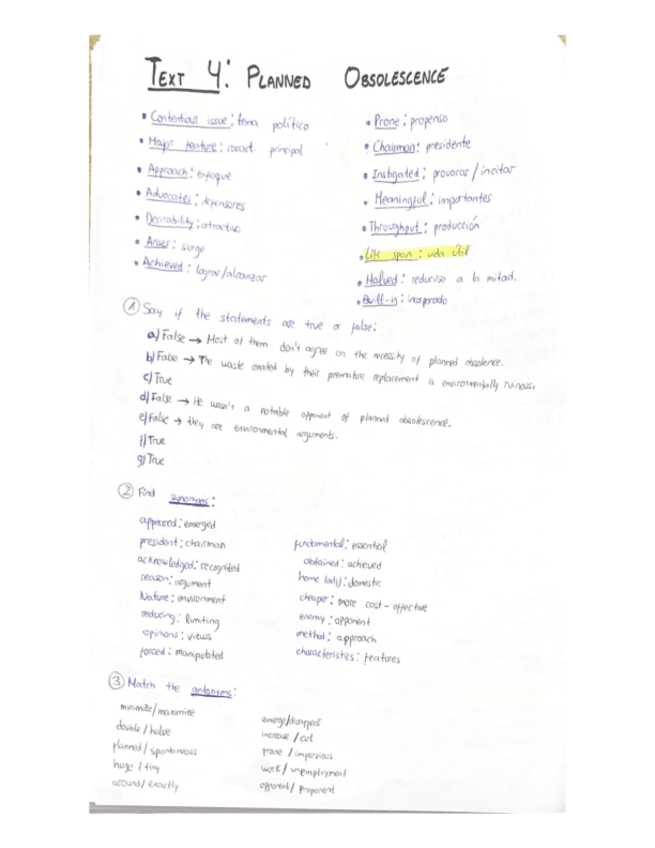 TEXT 4: PLANNED OBSOLESCENCE
• Contentious issue: tema político
• Major feature: caract. principal
• Approach: enfoque
• Advocates: defensores
• Desirability: atractivo
• Arises: surge
• Achieved: lograr/alcanzar
• Prone: propenso
• Chairman: presidente
• Instigated: provocar / incitar
• Meaningful: importantes
• Throughput: producción
• Life span: vida útil
• Halved: reducirse a la mitad.
• Built-in: incoprado
① Say if the statements are true or false:
a) False → Most of them don't agree on the necessity of planned obsolence.
b) False → The waste created by their premature replacement is environmentally ruinous.
c) True
d) False → He wasn't a notable opponent of planned obsolescence.
e) False → they are environmental arguments.
f) True
g) True
② Find synonyms:
appeared: emerged
president: chairman
acknowledged: recognized
reason: argument
Nature: environment
reducing: limiting
opinions: views
forced: manipulated
fundamental: essential
obtained: achieved
home (adj): domestic
cheaper: more cost-effective
enemy: opponent
method: approach
characteristics: features
③ Match the antonyms:
minimize/maximize
double/halve
planned/spontaneous
huge / tiny
around/exactly
emerge/disappear
increase / cut
prone / impervious
work/ unemployment
opponent/ proponent